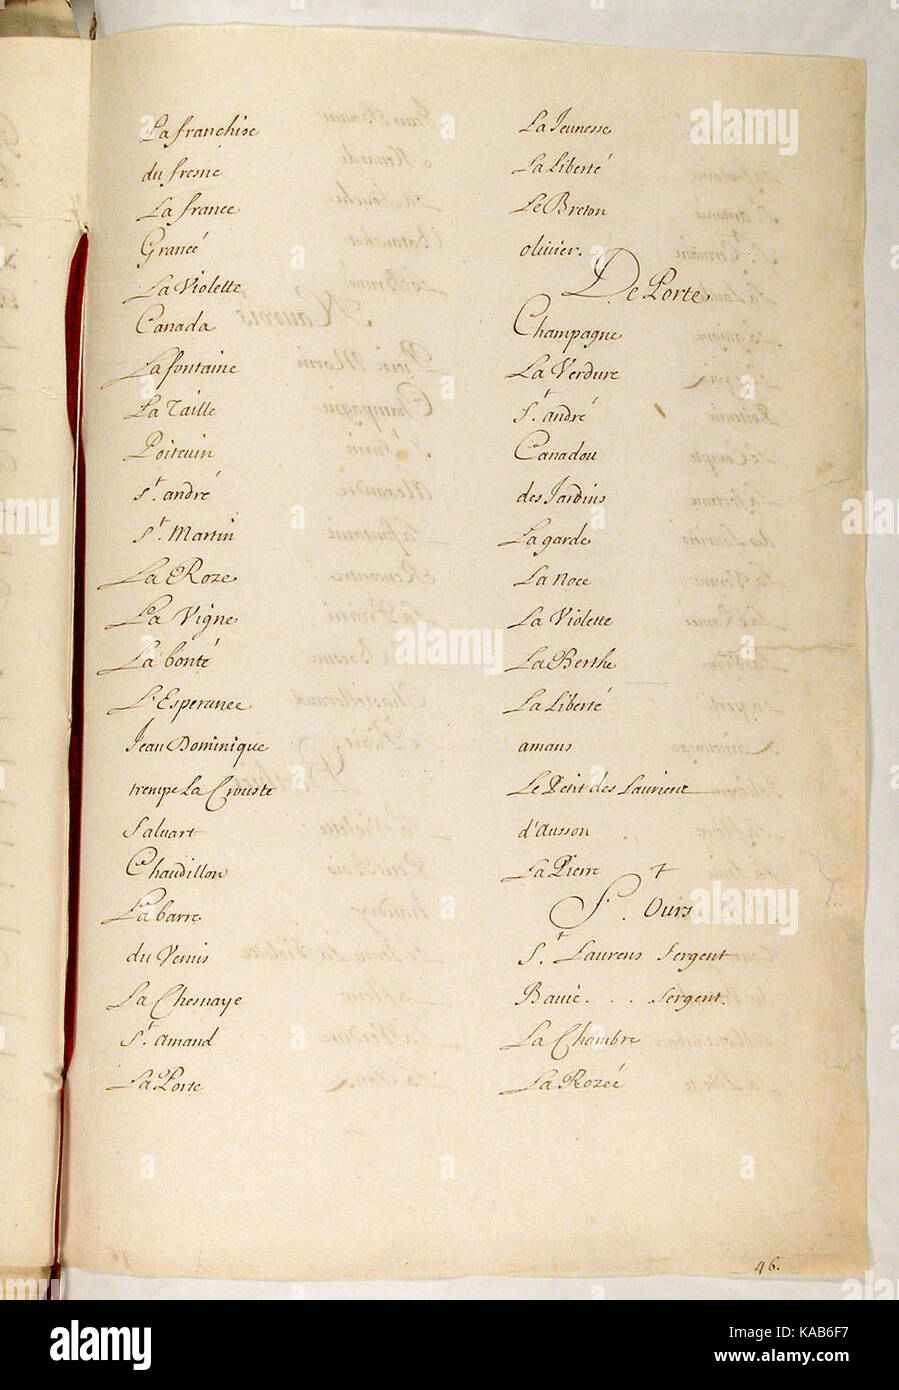 La franchise
du fresne
La france
Grancé
La Violette
Canada
Lafontaine
La Taille
Poiteuin
St. andré
St. Martin
La Roze
La Vigne
La bonté
L'Esperance
Jean Dominique
trempe La Crouste
Saluart
Chaudillon
La barre
du Venis
La Chesnaye
St. amand
La Porte
La Jeunesse
La Liberté
Le Breton
olivier.
De Porte
Champagne
La Verdure
St. andré
Canadou
des Jardins
La garde
La noce
La Violette
La Berthe
La Liberté
amans
Le Petit des Laurient
d'ausson
La Pierre
St. Ours
St. Laurens Sergent
Bavie . . . Sergent.
La Chambre
La Rozeé
46.
a
alamy
alamy stock photo
KAB6F7
www.alamy.com